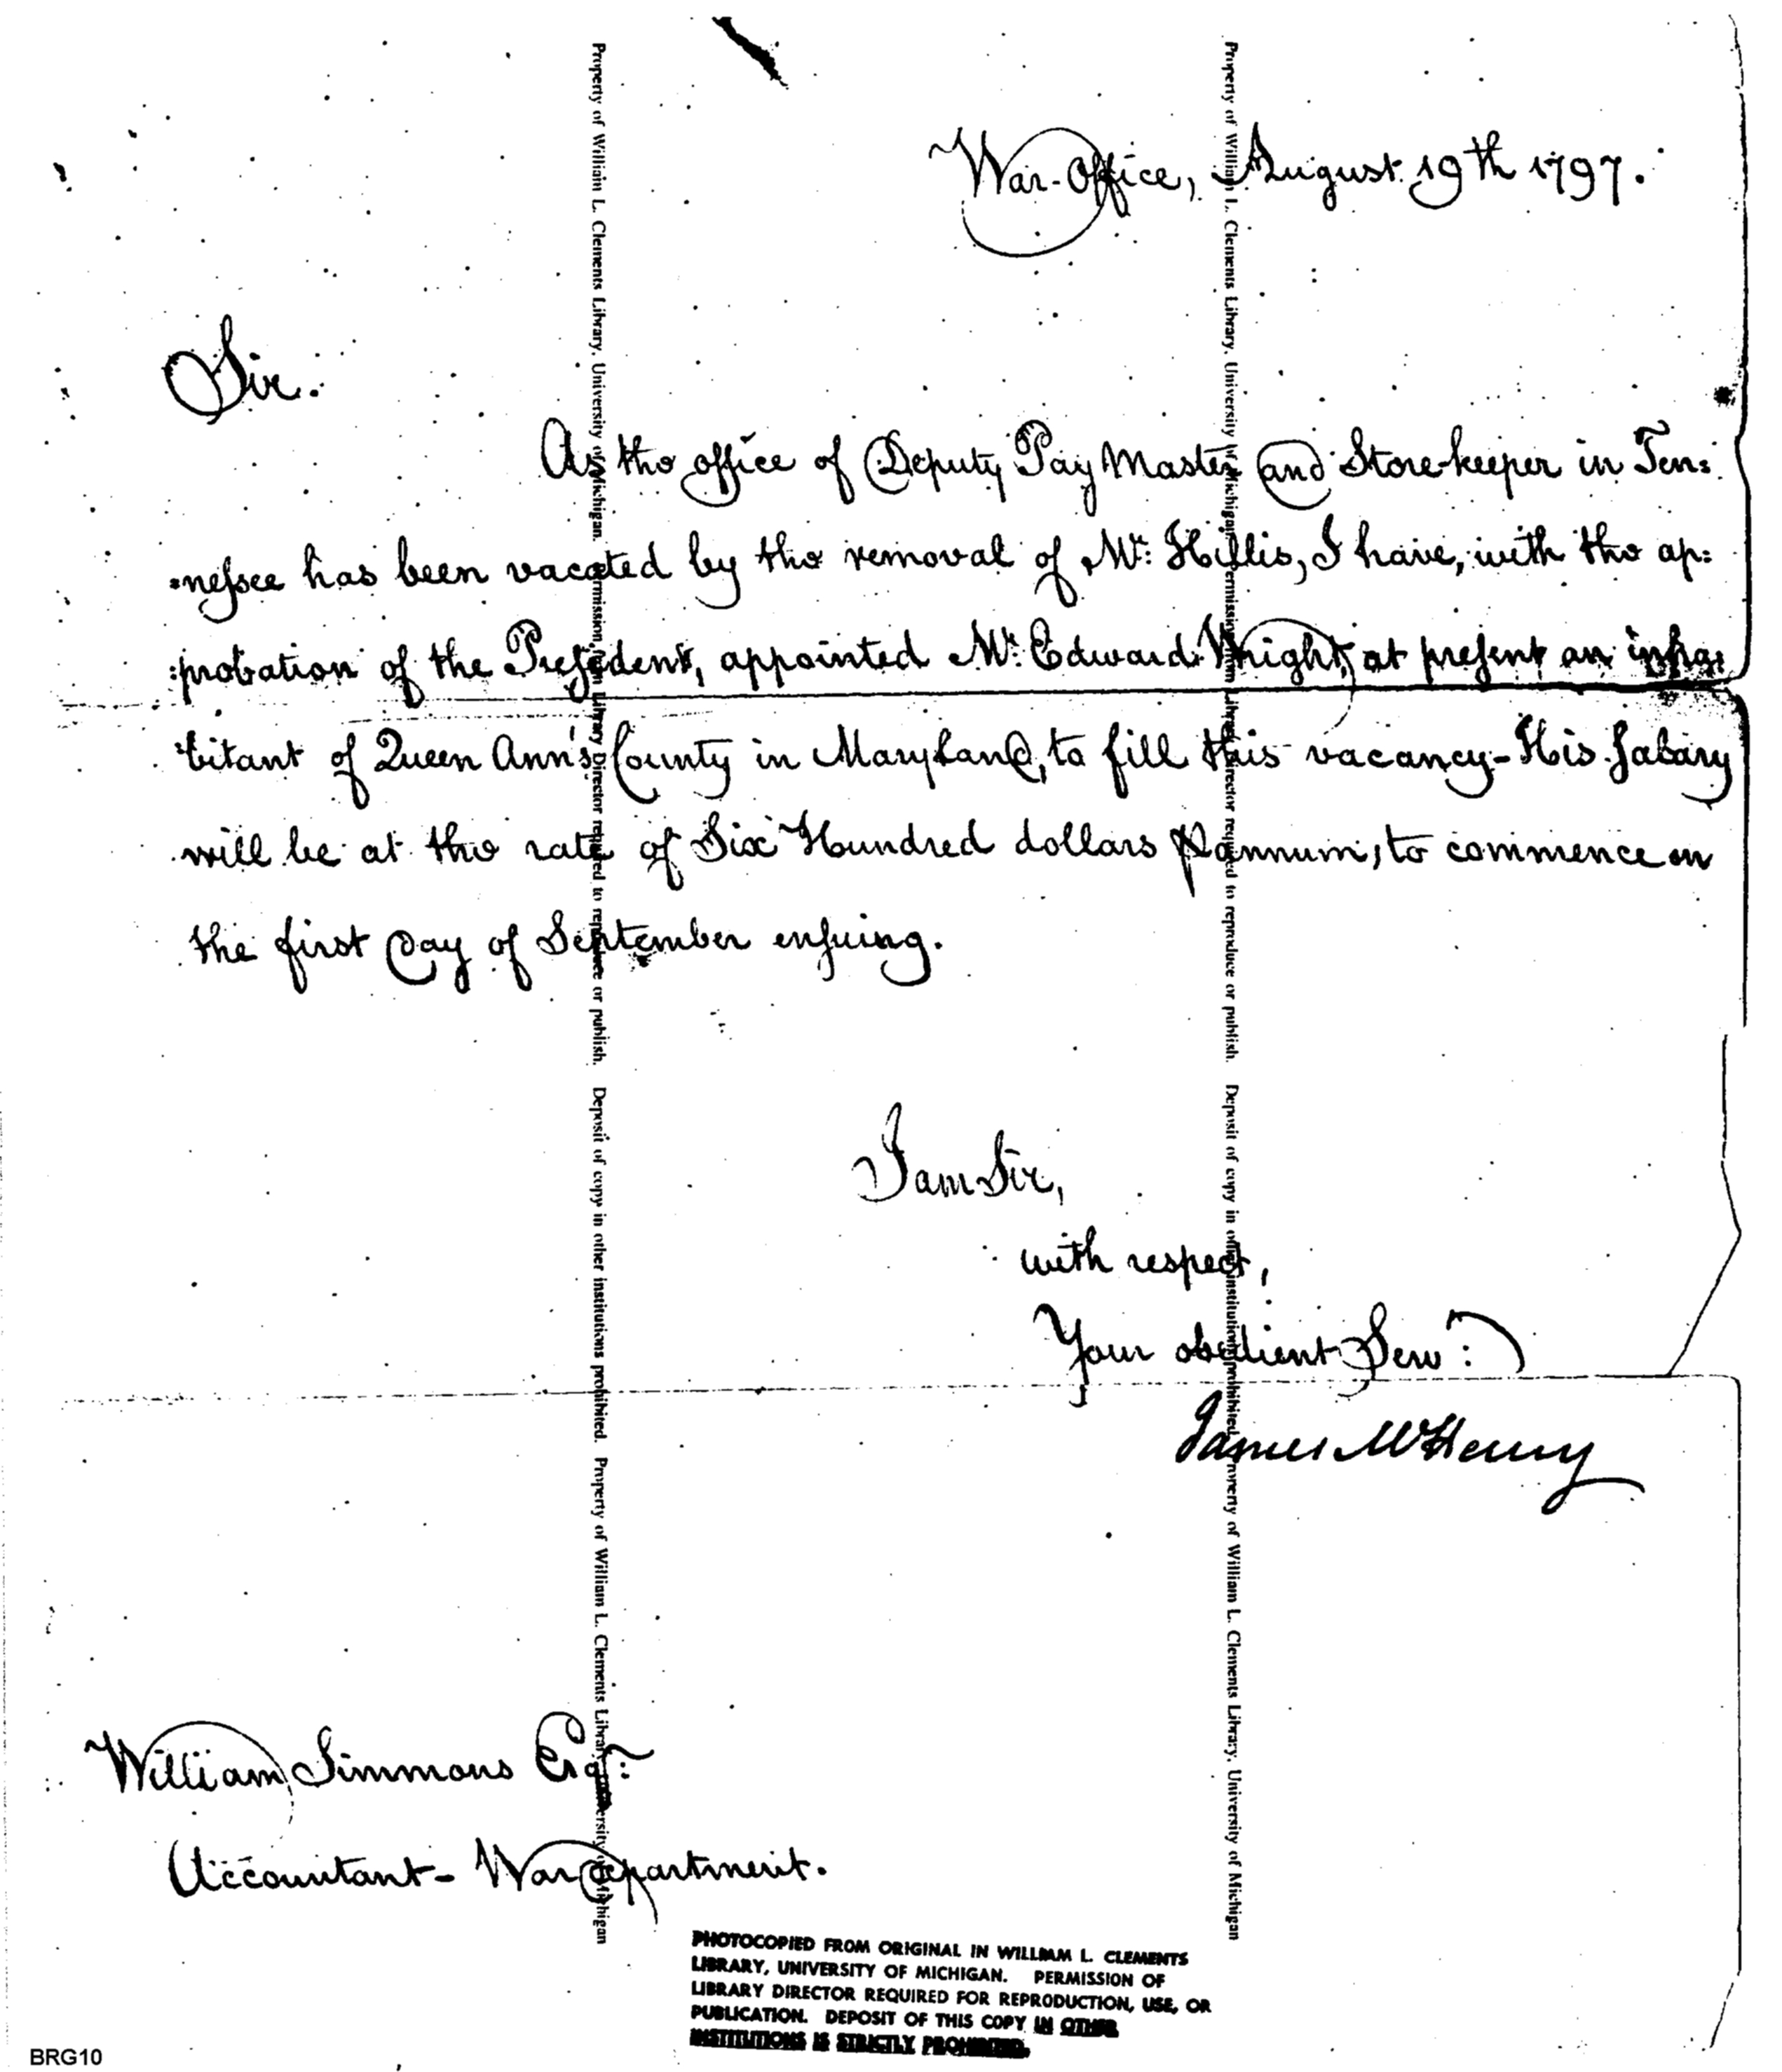 War-Office, August 19th 1797.
Sir.
As the office of Deputy Pay Master and Store-keeper in Ten:
:nessee has been vacated by the removal of Mr: Hillis, I have, with the ap:
:probation of the President, appointed Mr: Edward Wright, at present an inha:
:bitant of Queen Ann's County in Maryland, to fill this vacancy - His salary
will be at the rate of Six Hundred dollars ⅌ annum, to commence on
the first day of September ensuing.
I am Sir,
with respect,
Your obedient Serv:
James McHenry
William Simmons Esqr:
Accountant - War department.
Property of William L. Clements Library, University of Michigan. Permission from Library Director required to reproduce or publish. Deposit of copy in other institutions prohibited. Property of William L. Clements Library, University of Michigan
Property of William L. Clements Library, University of Michigan. Permission from Library Director required to reproduce or publish. Deposit of copy in other institutions prohibited. Property of William L. Clements Library, University of Michigan
PHOTOCOPIED FROM ORIGINAL IN WILLIAM L. CLEMENTS
LIBRARY, UNIVERSITY OF MICHIGAN. PERMISSION OF
LIBRARY DIRECTOR REQUIRED FOR REPRODUCTION, USE, OR
PUBLICATION. DEPOSIT OF THIS COPY IN OTHER
INSTITUTIONS IS STRICTLY PROHIBITED.
BRG10